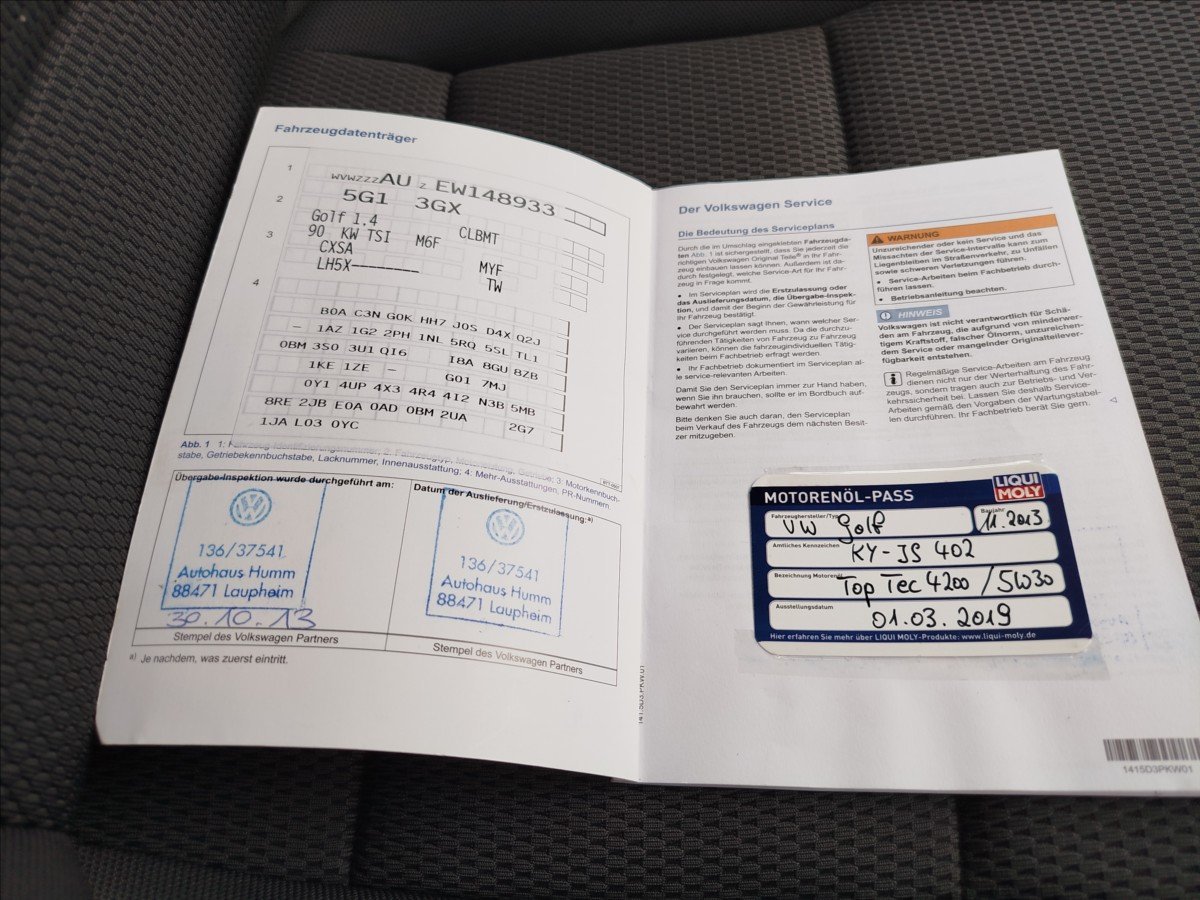 Fahrzeugdatenträger
1
WVWZZZAU Z EW148933
2
5G1 3GX
Golf 1.4
3
90 KW TSI M6F CLBMT
CXSA
LH5X-------- MYF
TW
4
B0A C3N G0K HH7 J0S D4X Q2J
- 1AZ 1G2 2PH 1NL 5RQ 5SL TL1
0BM 3S0 3U1 QI6 I8A 8GU 8ZB
1KE 1ZE - G01 7MJ
0Y1 4UP 4X3 4R4 4I2 N3B 5MB
8RE 2JB E0A 0AD 0BM 2UA 2G7
1JA L03 0YC
Abb. 1 1: Fahrzeug-Identifizierungsnummer; 2: Fahrzeugtyp, Motorleistung, Getriebe; 3: Motorkennbuch-
stabe, Getriebekennbuchstabe, Lacknummer, Innenausstattung; 4: Mehr-Ausstattungen, PR-Nummern
Übergabe-Inspektion wurde durchgeführt am:
136/37541
Autohaus Humm
88471 Laupheim
30.10.13
Stempel des Volkswagen Partners
Datum der Auslieferung/Erstzulassung:a)
136/37541
Autohaus Humm
88471 Laupheim
Stempel des Volkswagen Partners
a) Je nachdem, was zuerst eintritt.
Der Volkswagen Service
Die Bedeutung des Serviceplans
Durch die im Umschlag eingeklebten Fahrzeugda-
ten Abb. 1 ist sichergestellt, dass Sie jederzeit die
richtigen Volkswagen Original Teile® in Ihr Fahr-
zeug einbauen lassen können. Außerdem ist da-
durch festgelegt, welche Service-Art für Ihr Fahr-
zeug in Frage kommt.
• Im Serviceplan wird die Erstzulassung oder
das Auslieferungsdatum, die Übergabe-Inspek-
tion, und damit der Beginn der Gewährleistung für
Ihr Fahrzeug bestätigt.
• Der Serviceplan sagt Ihnen, wann welcher Ser-
vice durchgeführt werden muss. Da die durchzu-
führenden Tätigkeiten von Fahrzeug zu Fahrzeug
variieren, können die fahrzeugindividuellen Tätig-
keiten beim Fachbetrieb erfragt werden.
• Ihr Fachbetrieb dokumentiert im Serviceplan al-
le service-relevanten Arbeiten.
Damit Sie den Serviceplan immer zur Hand haben,
wenn Sie ihn brauchen, sollte er im Bordbuch auf-
bewahrt werden.
Bitte denken Sie auch daran, den Serviceplan
beim Verkauf des Fahrzeugs dem nächsten Besit-
zer mitzugeben.
WARNUNG
Unzureichender oder kein Service und das
Missachten der Service-Intervalle kann zum
Liegenbleiben im Straßenverkehr, zu Unfällen
sowie schweren Verletzungen führen.
• Service-Arbeiten beim Fachbetrieb durch-
führen lassen.
• Betriebsanleitung beachten.
HINWEIS
Volkswagen ist nicht verantwortlich für Schä-
den am Fahrzeug, die aufgrund von minderwer-
tigem Kraftstoff, falscher Ölnorm, unzureichen-
dem Service oder mangelnder Originalteilever-
fügbarkeit entstehen.
Regelmäßige Service-Arbeiten am Fahrzeug
dienen nicht nur der Werterhaltung des Fahr-
zeugs, sondern tragen auch zur Betriebs- und Ver-
kehrssicherheit bei. Lassen Sie deshalb Service-
Arbeiten gemäß den Vorgaben der Wartungstabel-
len durchführen. Ihr Fachbetrieb berät Sie gern.
MOTORENÖL-PASS
LIQUI
MOLY
Fahrzeughersteller/Typ
VW Golf
Baujahr
11.2013
Amtliches Kennzeichen
KY-JS 402
Bezeichnung Motorenöl
Top Tec 4200 / 5W30
Ausstellungsdatum
01.03.2019
Hier erfahren Sie mehr über LIQUI MOLY-Produkte: www.liqui-moly.de
141.5D3.PKW.01
1415D3PKW01